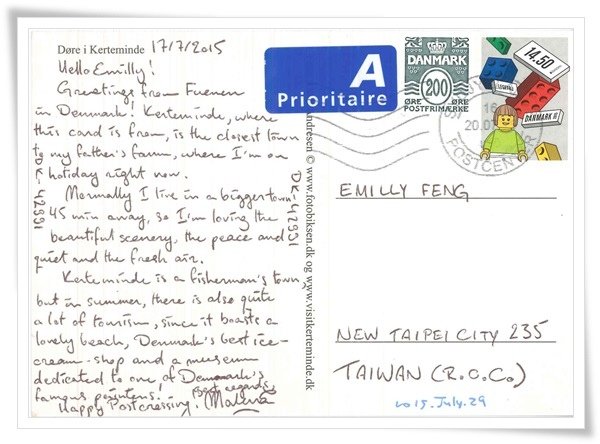 Døre i Kerteminde 17/7/2015
Hello Emilly!
Greetings from Fuenen
in Denmark! Kerteminde, where
this card is from, is the closest town
to my father's farm, where I'm on
holiday right now.
Normally I live in a bigger town
45 min away, so I'm loving the
beautiful scenery, the peace and
quiet and the fresh air.
Kerteminde is a fisherman's town
but in summer, there is also quite
a lot of tourism, since it boasts a
lovely beach, Denmark's best ice-
cream-shop and a museum
dedicated to one of Denmark's
famous painters! Best regards,
Happy Postcrossing!
DK-42391
DK-42391
andresen © www.fotobiksen.dk og www.visitkerteminde.dk
A
Prioritaire
DANMARK
200
ØRE ØRE
POSTFRIMÆRKE
14.50
DANMARK
16
20.0
POSTCEN
EMILLY FENG
NEW TAIPEI CITY 235
TAIWAN (R.O.C.)
2015.July.29